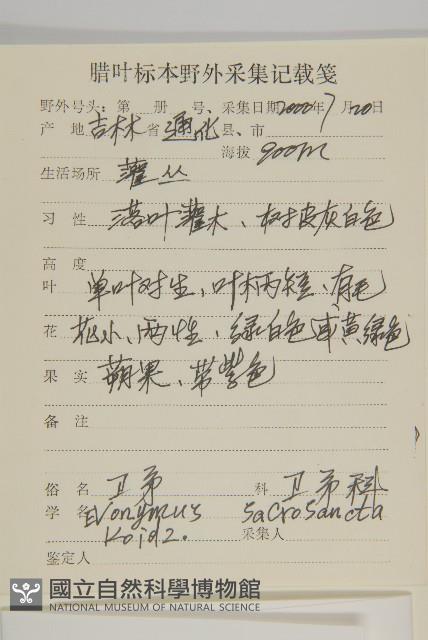 腊叶标本野外采集记载笺
野外号头:第 册 号、采集日期2000年7月20日
产 地 吉林省 通化 县、市
海拔 900m
生活场所 灌丛
习 性 落叶灌木、树皮灰白色
高 度
叶 单叶对生、叶柄短、有毛
花 花小、两性、绿白色或黄绿色
果 实 蒴果、带紫色
备 注
俗 名 卫矛 科 卫矛科
学 名 Evonymus Sacrosancta
Koidz. 采集人
鉴定人
國立自然科學博物館
NATIONAL MUSEUM OF NATURAL SCIENCE